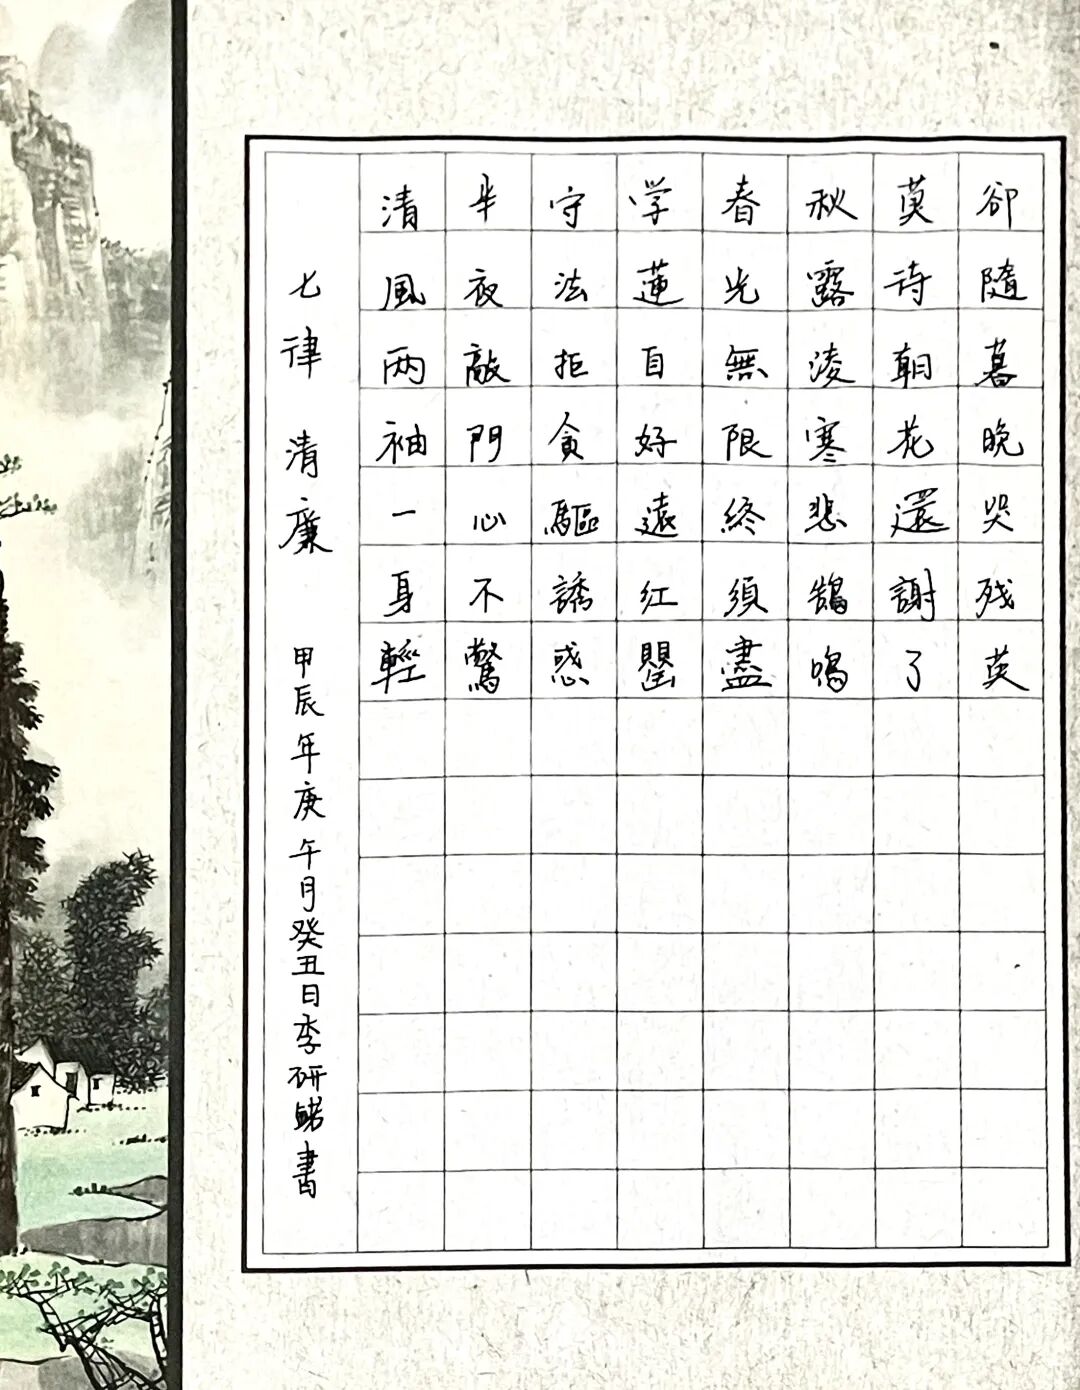 七律 清廉 甲辰年庚午月癸丑日李研書
清風两袖一身輕
半夜敲門心不驚
守法拒貪驅誘惑
学蓮自好遠紅罌
春光無限終須盡
秋露淩寒悲鵠鳴
莫待朝花還謝了
卻隨暮晚哭残英